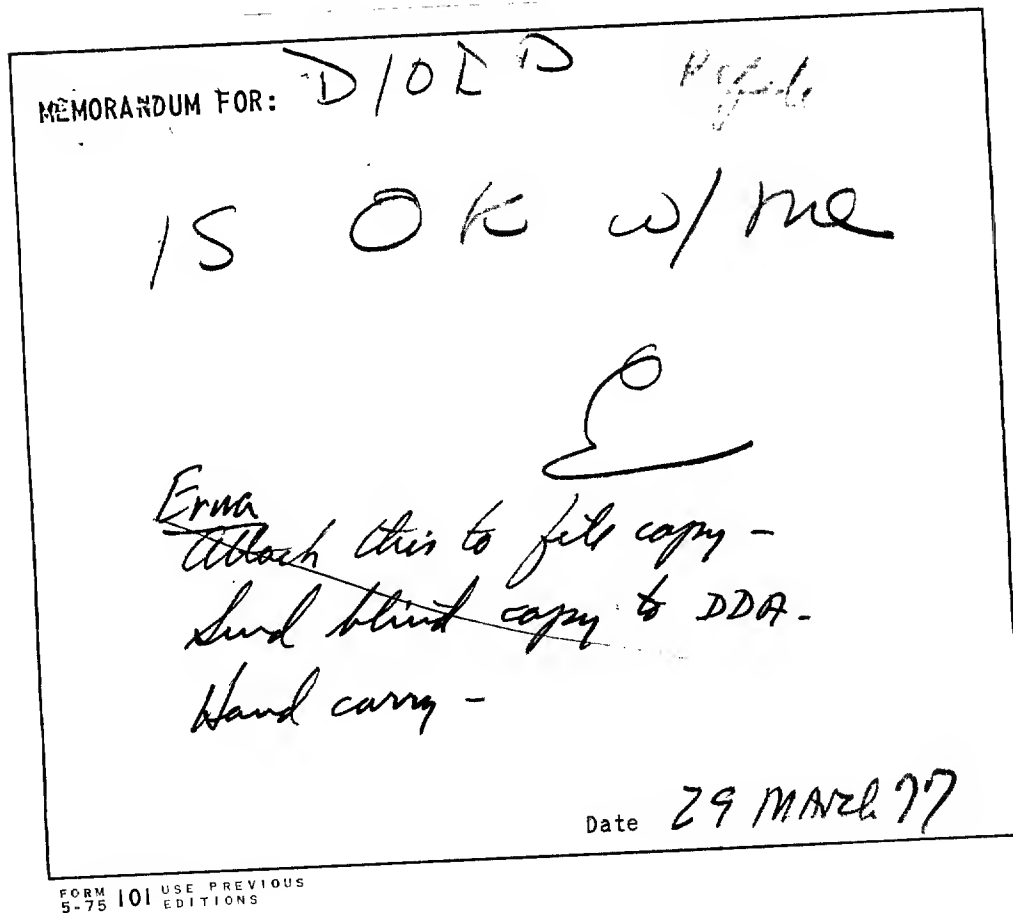 MEMORANDUM FOR: D/OED
IS OK w/ me
Erna
Attach this to file copy -
Send blind copy to DDA -
Hand carry -
Date 29 MARch 77
FORM 5-75 101 USE PREVIOUS EDITIONS